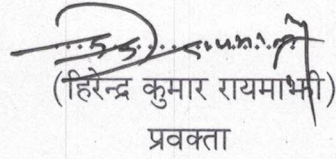 (हिरेन्द्र कुमार रायमाझी)
प्रवक्ता